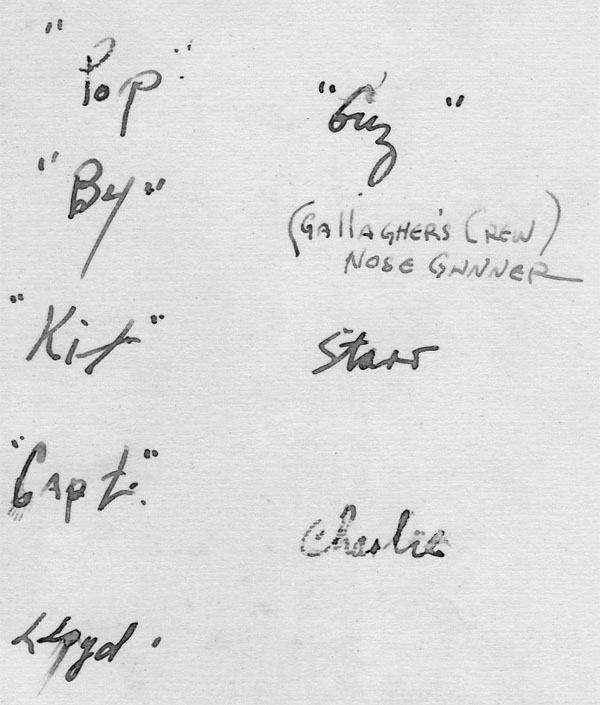 "Pop"
"By"
"Kit"
"Capt."
Lloyd.
"Guz"
(GAllAGHER'S CREW)
NOSE GUNNER
Starr
Charlie